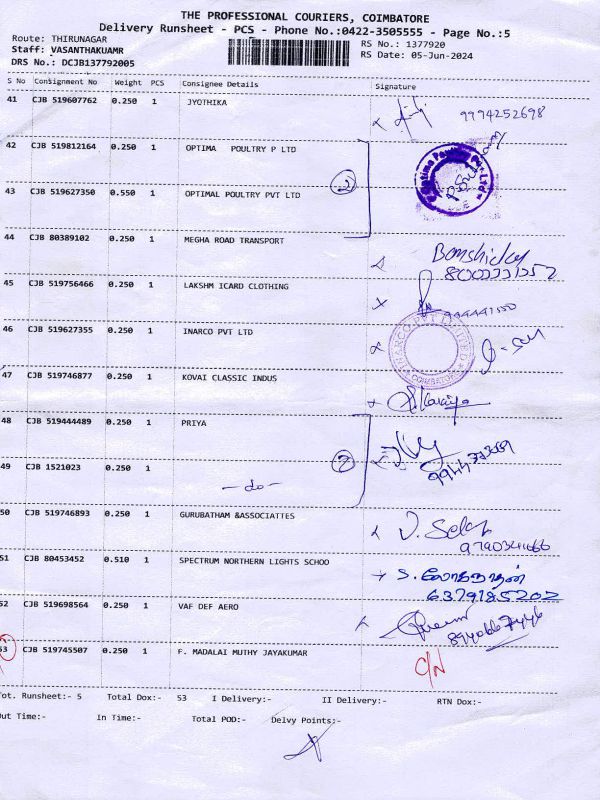 THE PROFESSIONAL COURIERS, COIMBATORE
Delivery Runsheet - PCS - Phone No.:0422-3505555 - Page No.:5
Route: THIRUNAGAR
RS No.: 1377920
Staff: VASANTHAKUAMR
RS Date: 05-Jun-2024
DRS No.: DCJB137792005
S No Consignment No Weight PCS Consignee Details Signature
41 CJB 519607762 0.250 1 JYOTHIKA 9994252698
42 CJB 519812164 0.250 1 OPTIMA POULTRY P LTD
2
43 CJB 519627350 0.550 1 OPTIMAL POULTRY PVT LTD
44 CJB 80389102 0.250 1 MEGHA ROAD TRANSPORT
45 CJB 519756466 0.250 1 LAKSHM ICARD CLOTHING
46 CJB 519627355 0.250 1 INARCO PVT LTD
INARCO PVT LIMITED
COIMBATORE
47 CJB 519746877 0.250 1 KOVAI CLASSIC INDUS
48 CJB 519444489 0.250 1 PRIYA
2
49 CJB 1521023 0.250 1
- do -
50 CJB 519746893 0.250 1 GURUBATHAM &ASSOCIATTES
51 CJB 80453452 0.510 1 SPECTRUM NORTHERN LIGHTS SCHOO
6379185202
52 CJB 519698564 0.250 1 VAF DEF AERO
53 CJB 519745507 0.250 1 F. MADALAI MUTHY JAYAKUMAR C/N
Tot. Runsheet:- 5 Total Dox:- 53 I Delivery:- II Delivery:- RTN Dox:-
Out Time:- In Time:- Total POD:- Delvy Points:-